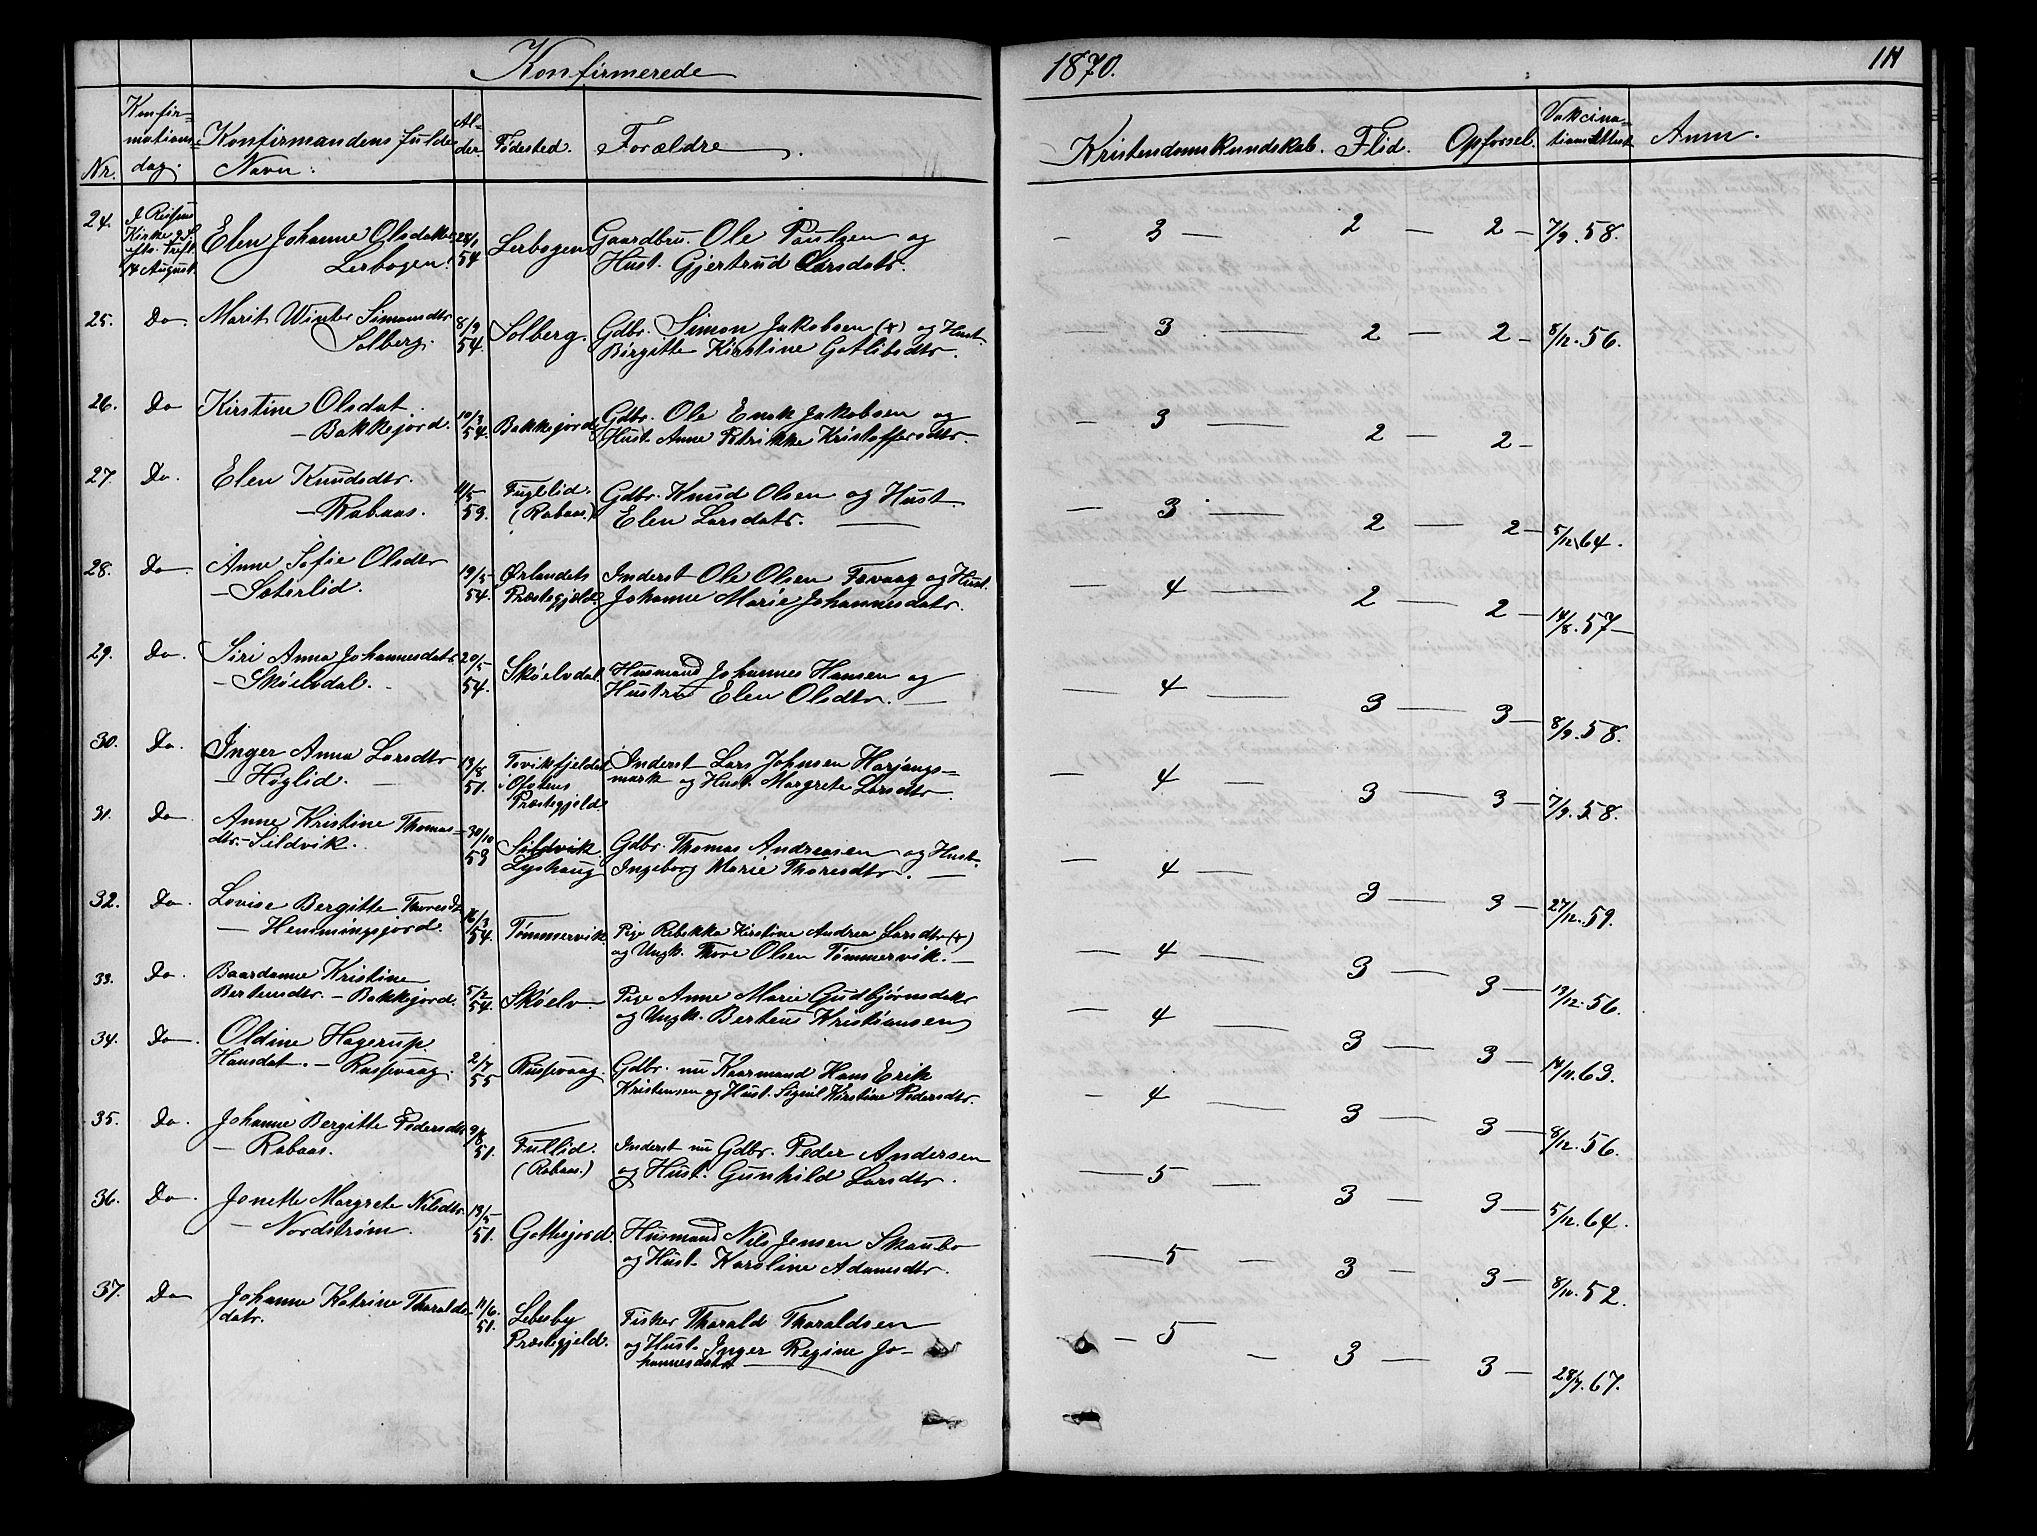 Konfirmerede
1870.
111
Nr.
Konfir-
mations-
dag.
Konfirmandens fulde
Navn.
Al-
der.
Fødested.
Forældre
Kristendomskundskab. Flid. Opførsel.
Vakcina-
tionsattest
Anm.
24.
Kirke 9 S.
efter Trft.
14 August.
Elen Johanne Olsdatter
Lerbogen.
28/1
54
Lerbogen
Gaardbru. Ole Paulsen og
Hust. Gjertrud Larsdatr.
3 — 2 — 2 — 7/9. 58.
25. Do. Marit Winter Simonsdtr
Solberg.
8/9
54.
Solberg.
Gdbr. Simon Jakobsen (+) og Hust.
Birgitte Kirstine Gotlibsdtr.
3 — 2 — 2 — 8/12. 56.
26. Do Kirstine Olsdat.
— Bakkejord.
10/3
54.
Bakkejord.
Gdbr. Ole Enok Jakobsen og
Hust. Anne Petrikke Kristoffersdtr.
3 — 2 — 2 —
27. Do. Elen Knudsdtr.
— Rabaas.
11/5
53.
Fuglelid.
(Rabaas.)
Gdbr. Knud Olsen og Hust.
Elen Larsdatr.
3 — 2 — 2 — 5/12 64.
28. Do. Anne Sofie Olsdtr
— Sæterlid.
19/5
54.
Ørlandets
Præstegjeld.
Inderst Ole Olsen Fævaag og Hust.
Johanne Marie Johannesdatr.
4 — 2 — 2 — 14/8. 57 —
29. Do. Siri Anna Johannesdatr
— Skøelvdal.
20/5
54.
Skøelvdal.
Husmand Johannes Hansen og
Hustru Elen Olsdtr.
4 — 3 — 3 — 8/9. 58.
30. Do. Inger Anna Larsdtr
— Høglid.
13/8
51.
i Ofotens
Præstegjeld.
Inderst Lars Johnsen Harjangs-
mark og Hust. Margrete Larsdtr.
4 — 3 — 3 — 7/9. 58.
31. Do Anne Kristine Thomas-
dtr. — Sildvik.
30/10
53
Sildvik.
Lyshaug
Gdbr. Thomas Andreasen og Hust.
Ingeborg Marie Thoresdtr.
4 — 3 — 3 — 27/12. 59.
32. Do. Lovise Bergitte Thoresdt
— Hemmingsjord.
16/3
54.
Tømmervik.
Pige Rebekka Kirstine Andrea Larsdtr (+)
og Ungk. Thore Olsen Tømmervik. —
4 — 3 — 3 — 19/12. 56.
33. Do. Baardanne Kristine
Berteusdtr. — Bakkejord.
5/2
54.
Skøelv
Pige Anne Marie Gudbjørnsdatr
og Ungk. Berteus Kristiansen
4 — 3 — 3 — 14/11. 63.
34. Do Oldine Hagerup.
Hansdat. — Russevaag.
2/7
55
Russevaag.
Gdbr. nu Kaarmand Hans Erik
Kristensen og Hust. Signil Kirstine Pedersdtr.
4 — 3 — 3 — 8/12. 56.
35. Do. Johanne Bergitte Pedersdtr
— Rabaas.
9/8
51.
Fuglelid.
(Rabaas.)
Inderst nu Gdbr. Peder Andersen
og Hust. Gunhild Larsdtr.
5 — 3 — 3 — 5/12. 64.
36. Do. Jonette Margrete Nilsdtr.
— Nordstrøm.
51.
Gottesjord.
Husmand Nils Jensen Skaubo
og Hust. Karoline Adamsdtr.
5 — 3 — 3 — 8/10. 52.
37. Do Johanne Katrine Tharalds-
datr.
11/6.
51.
Lebesby
Præstegjeld.
Fisker Tharald Tharaldsen
og Hust. Inger Regine Jo-
hannesdatr
5 — 3 — 3 — 28/7. 67.